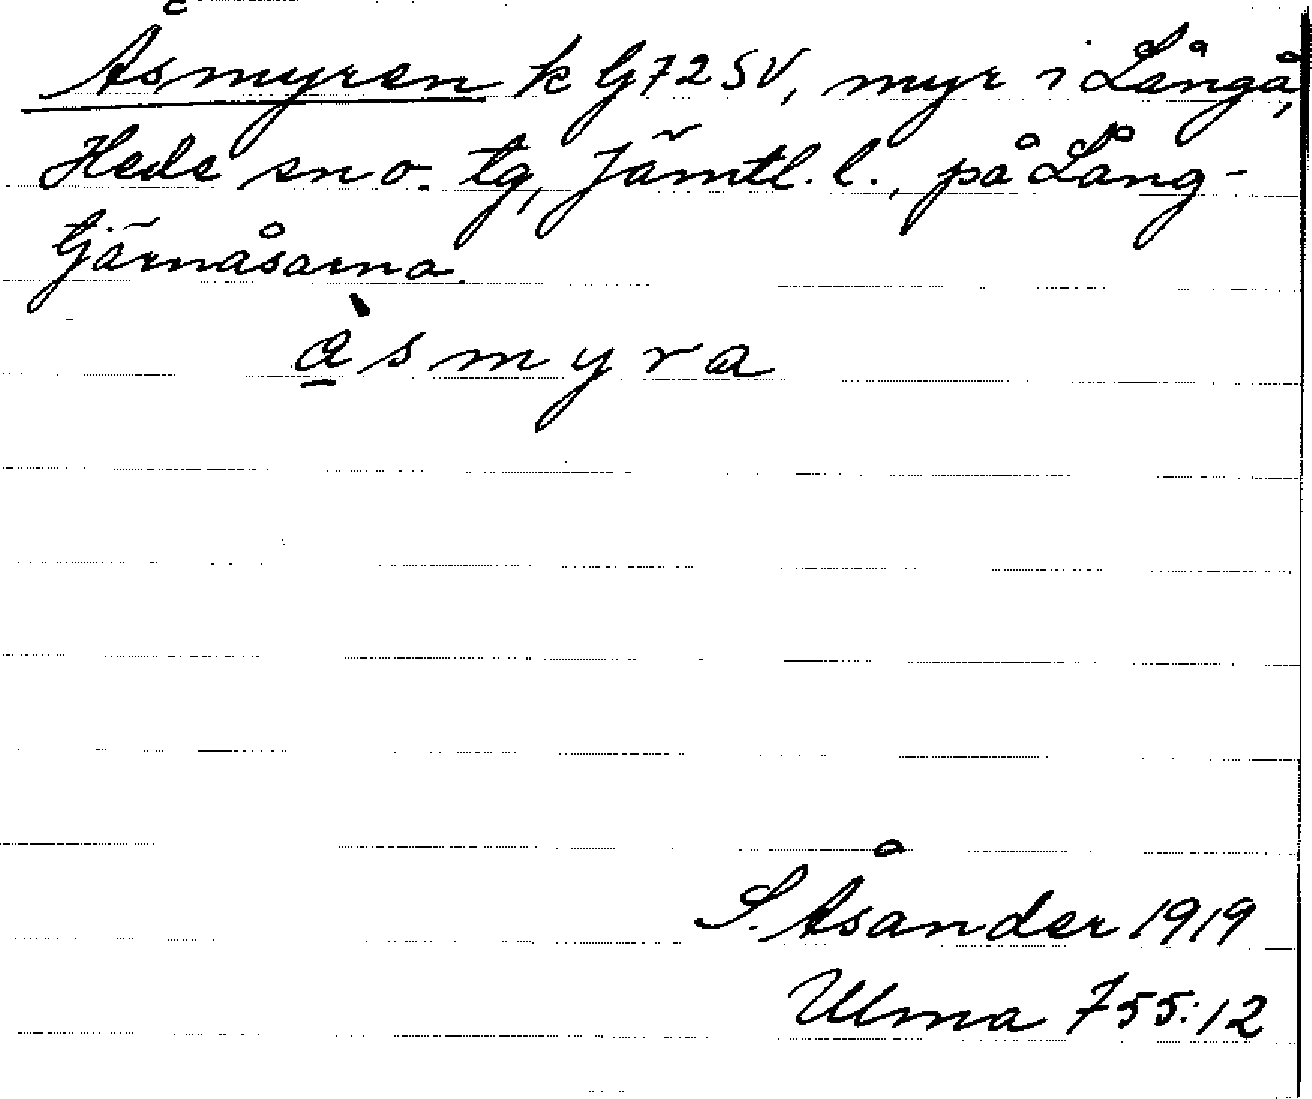 Åsmyren k G72SV, myr i Långå,
Hede sn o. tg, Jämtl. l., på Lång-
tjärnåsarna.
àsmyra
S. Åsander 1919
Ulma 755:12